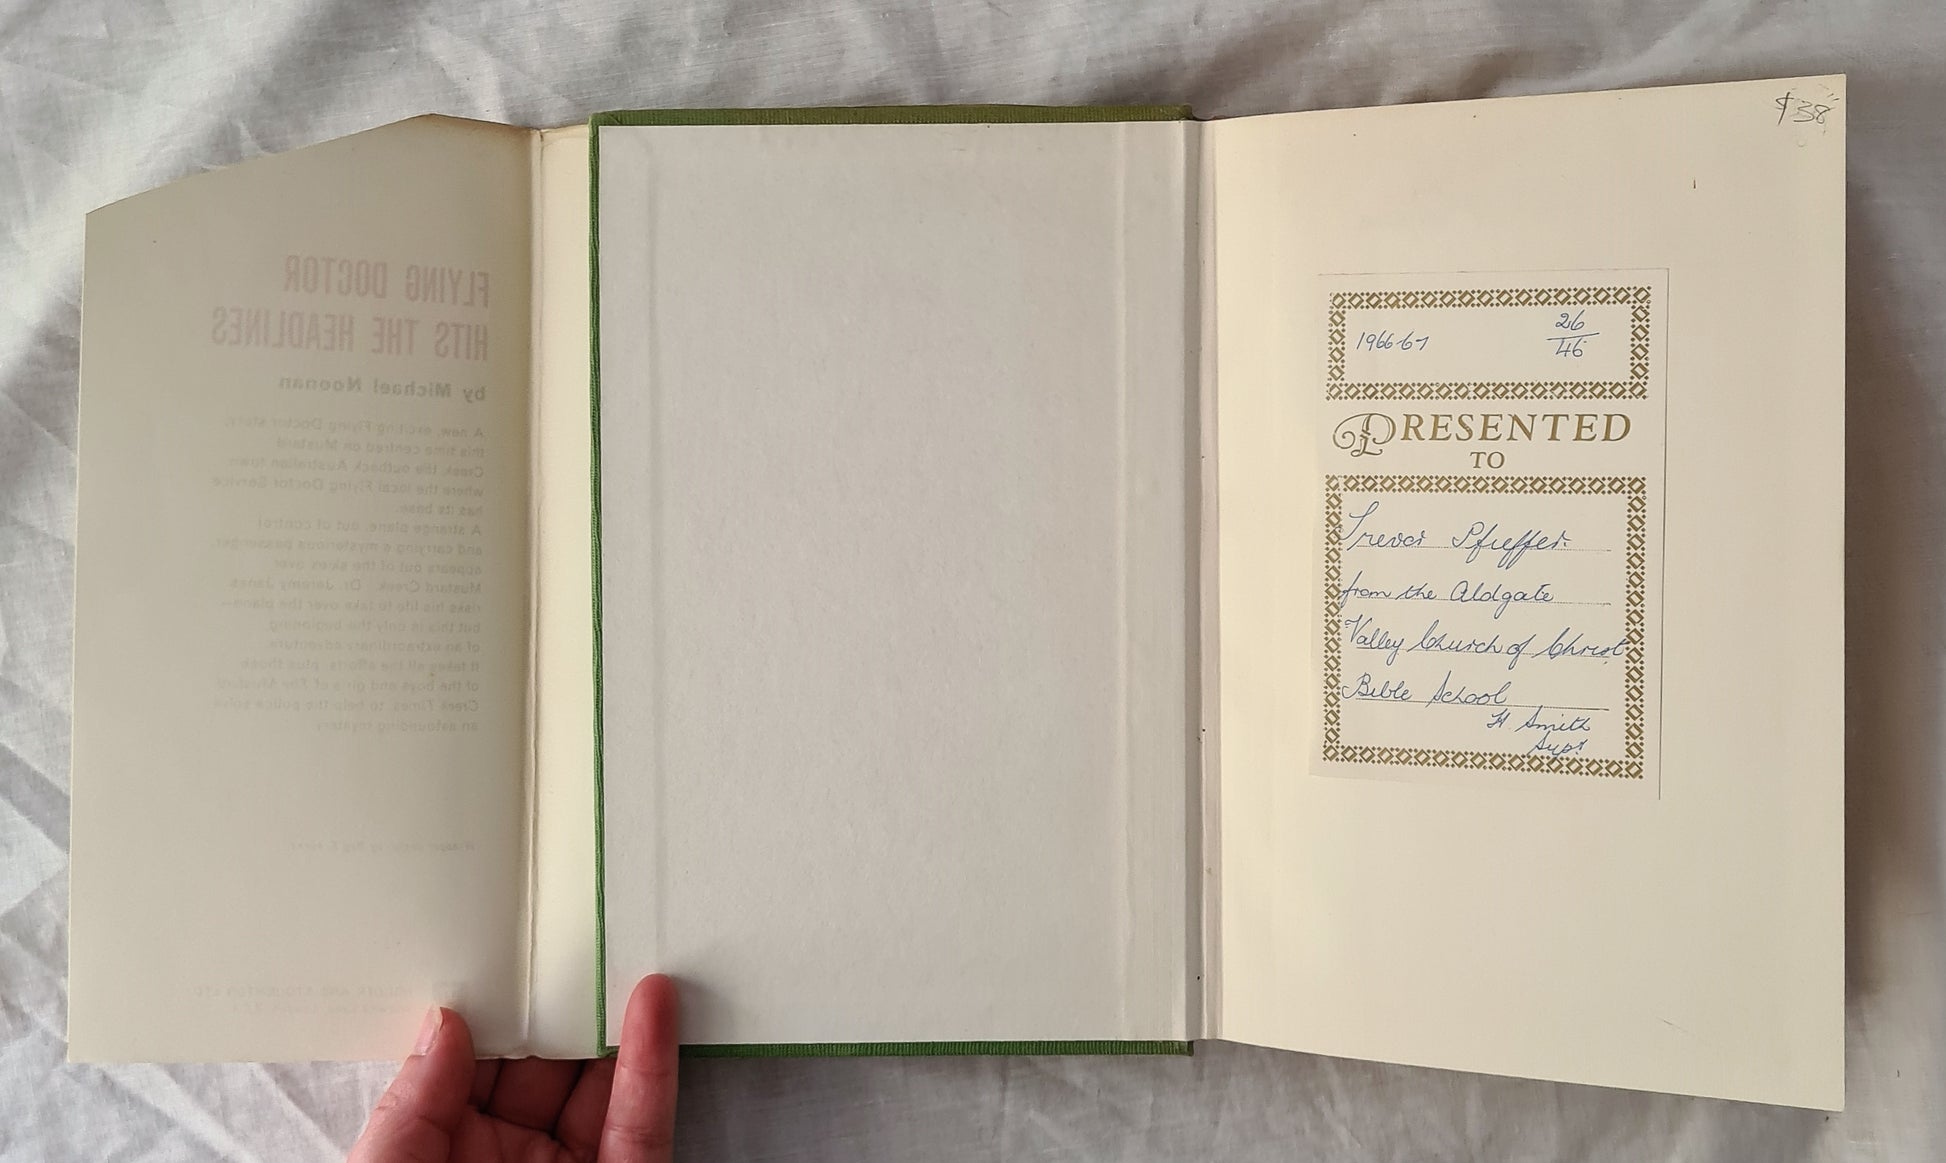 FLYING DOCTOR
HITS THE HEADLINES
by Michael Noonan
A new, exciting Flying Doctor story,
this time centred on Mustard
Creek, the outback Australian town
where the local Flying Doctor Service
has its base.
A strange plane, out of control
and carrying a mysterious passenger,
appears out of the skies over
Mustard Creek. Dr. Jeremy Jones
risks his life to take over the plane—
but this is only the beginning
of an extraordinary adventure.
It takes all the efforts, plus those
of the boys and girls of The Mustard
Creek Times, to help the police solve
an astounding mystery.
AND STOUGHTON LTD
$38
1966-67
26
46
PRESENTED
TO
Trevor Pfieffer.
from the Aldgate
Valley Church of Christ
Bible School
H. Smith
Supt